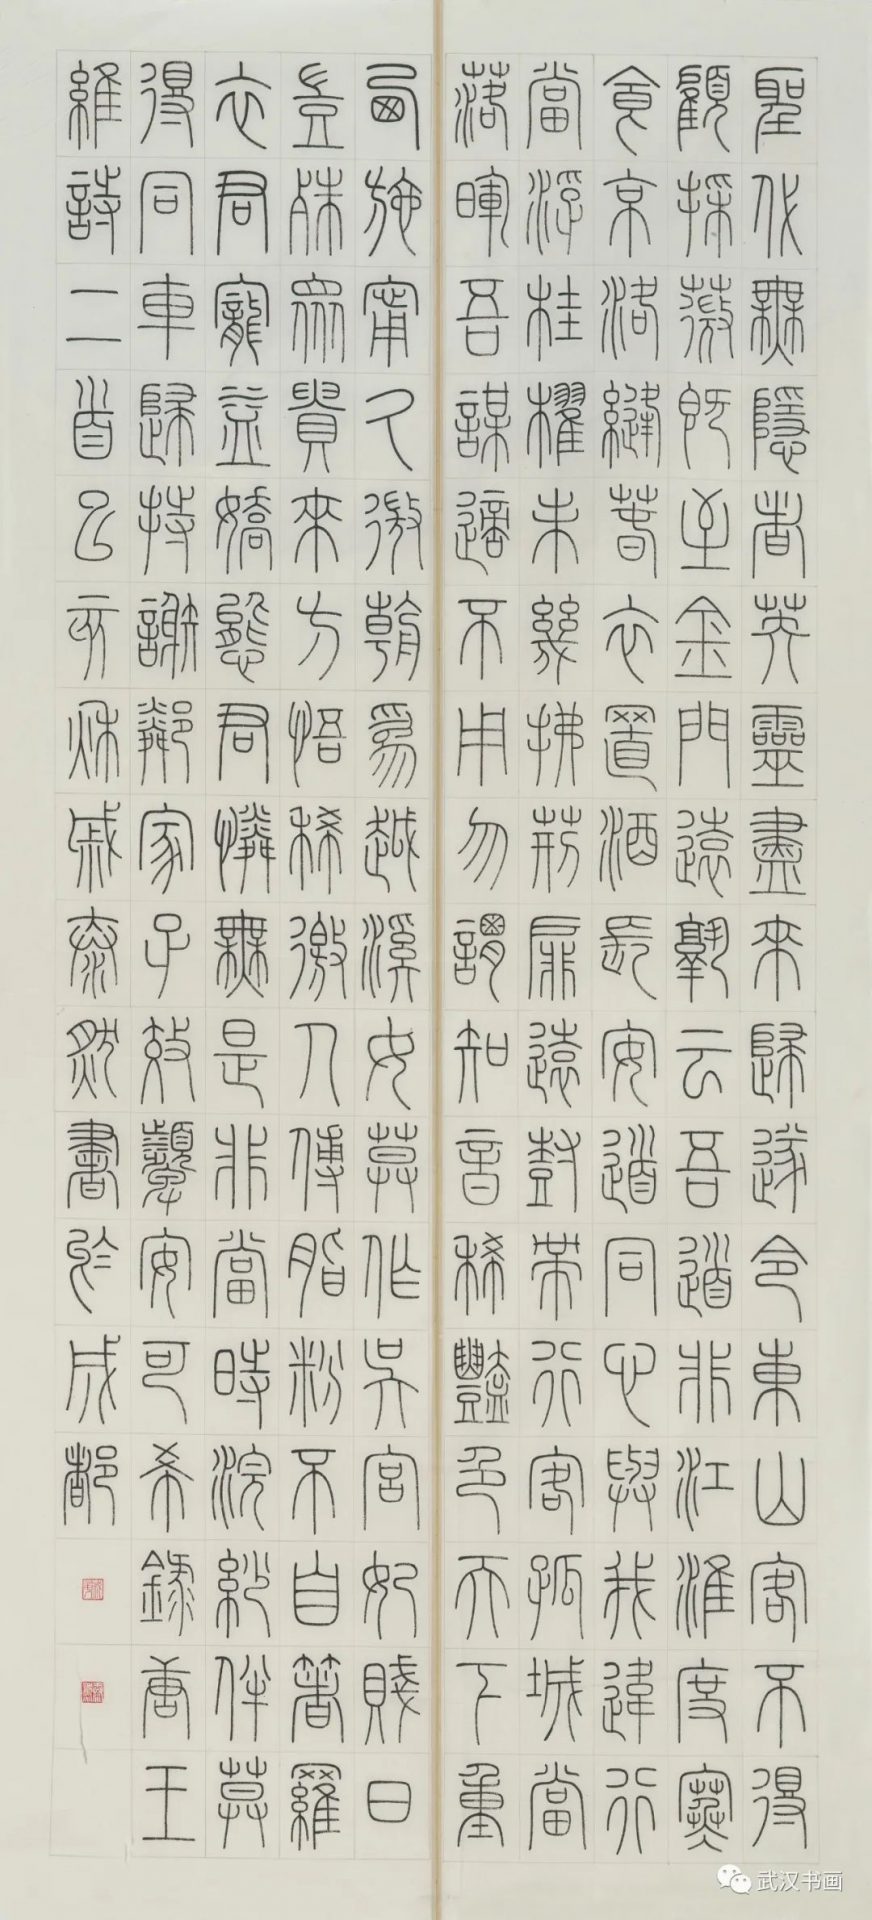 聖代無隱者英靈盡來歸遂令東山客不得
顧採薇既至金門遠孰云吾道非江淮度寒
食京洛縫春衣置酒長安道同心與我違行
當浮桂櫂未幾拂荊扉遠樹帶行客孤城當
落暉吾謀適不用勿謂知音稀豔色天下重
西施甯久微朝爲越溪女莫作吳宮妃賤日
豈殊眾貴來方悟稀徼人傅脂粉不自箸羅
衣君寵益嬌態君憐無是非當時浣紗伴莫
得同車歸持謝鄰家子效顰安可希錄唐王
維詩二首己亥秋戚泰然書於成都
武汉书画